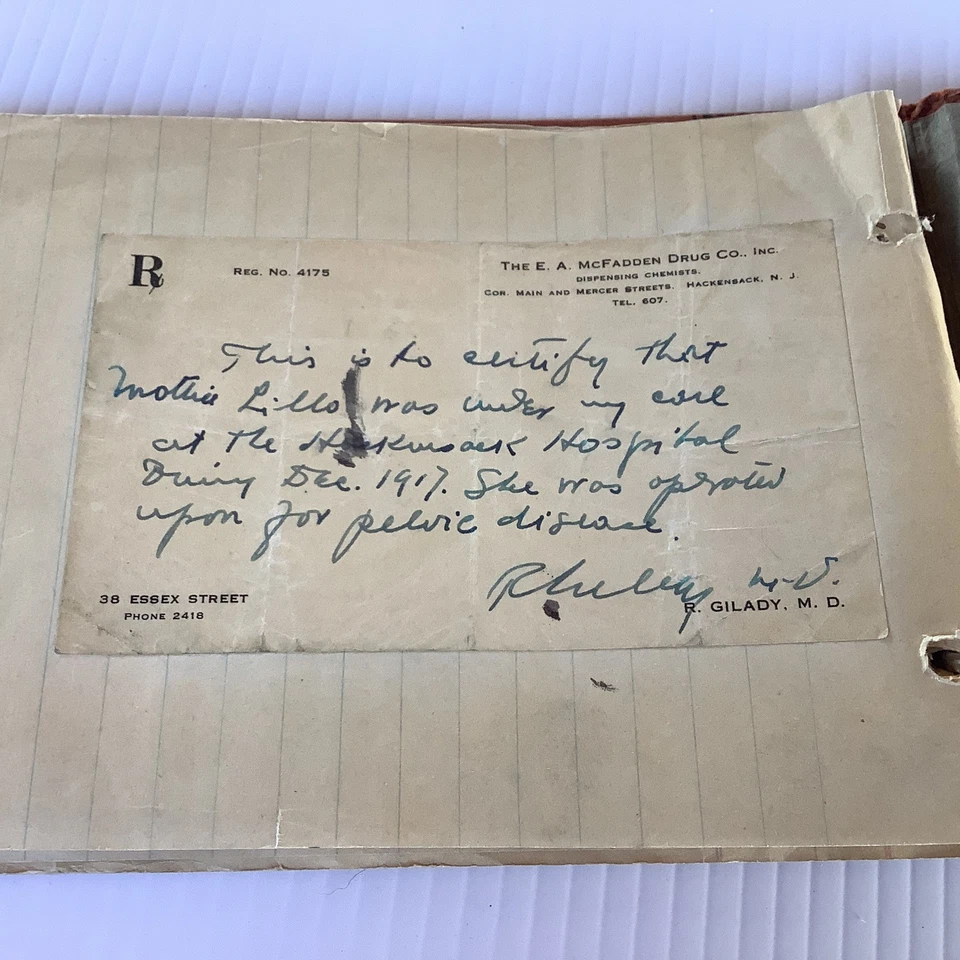 Rx
REG. NO. 4175
THE E. A. MCFADDEN DRUG CO., INC.
DISPENSING CHEMISTS.
COR. MAIN AND MERCER STREETS. HACKENSACK, N. J.
TEL. 607.
This is to certify that
Lillo was under my care
at the Hackensack Hospital
During Dec. 1917. She was operated
upon for pelvic disease.
M.D.
38 ESSEX STREET
PHONE 2418
R. GILADY, M. D.